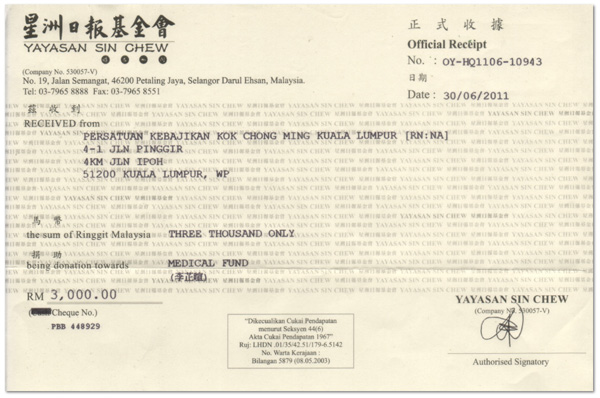 星洲日報基金會
YAYASAN SIN CHEW
(Company No. 530057-V)
No. 19, Jalan Semangat, 46200 Petaling Jaya, Selangor Darul Ehsan, Malaysia.
Tel: 03-7965 8888 Fax: 03-7965 8551
正式收據
Official Receipt
No. : OY-HQ1106-10943
日期:
Date : 30/06/2011
茲收到
RECEIVED from
PERSATUAN KEBAJIKAN KOK CHONG MING KUALA LUMPUR [RN:NA]
4-1 JLN PINGGIR
4KM JLN IPOH
51200 KUALA LUMPUR, WP
馬幣
the sum of Ringgit Malaysia THREE THOUSAND ONLY
捐助
being donation towards MEDICAL FUND
RM 3,000.00
Cheque No.)
PBB 448929
"Dikecualikan Cukai Pendapatan
menurut Seksyen 44(6)
Akta Cukai Pendapatan 1967"
Ruj: LHDN .01/35/42.51/179-6.5142
No. Warta Kerajaan :
Bilangan 5879 (08.05.2003)
YAYASAN SIN CHEW
(Company No. 530057-V)
Authorised Signatory